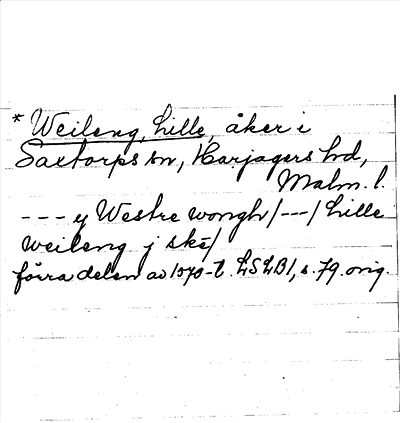 * Weileng, Lille, åker i
Saxtorps sn, Harjagers hd,
Malm. l.
--- y Westre wongh /---/ Lille
weileng j skē/
förra delen av 1570-t. LSLB1, s. 79. orig.